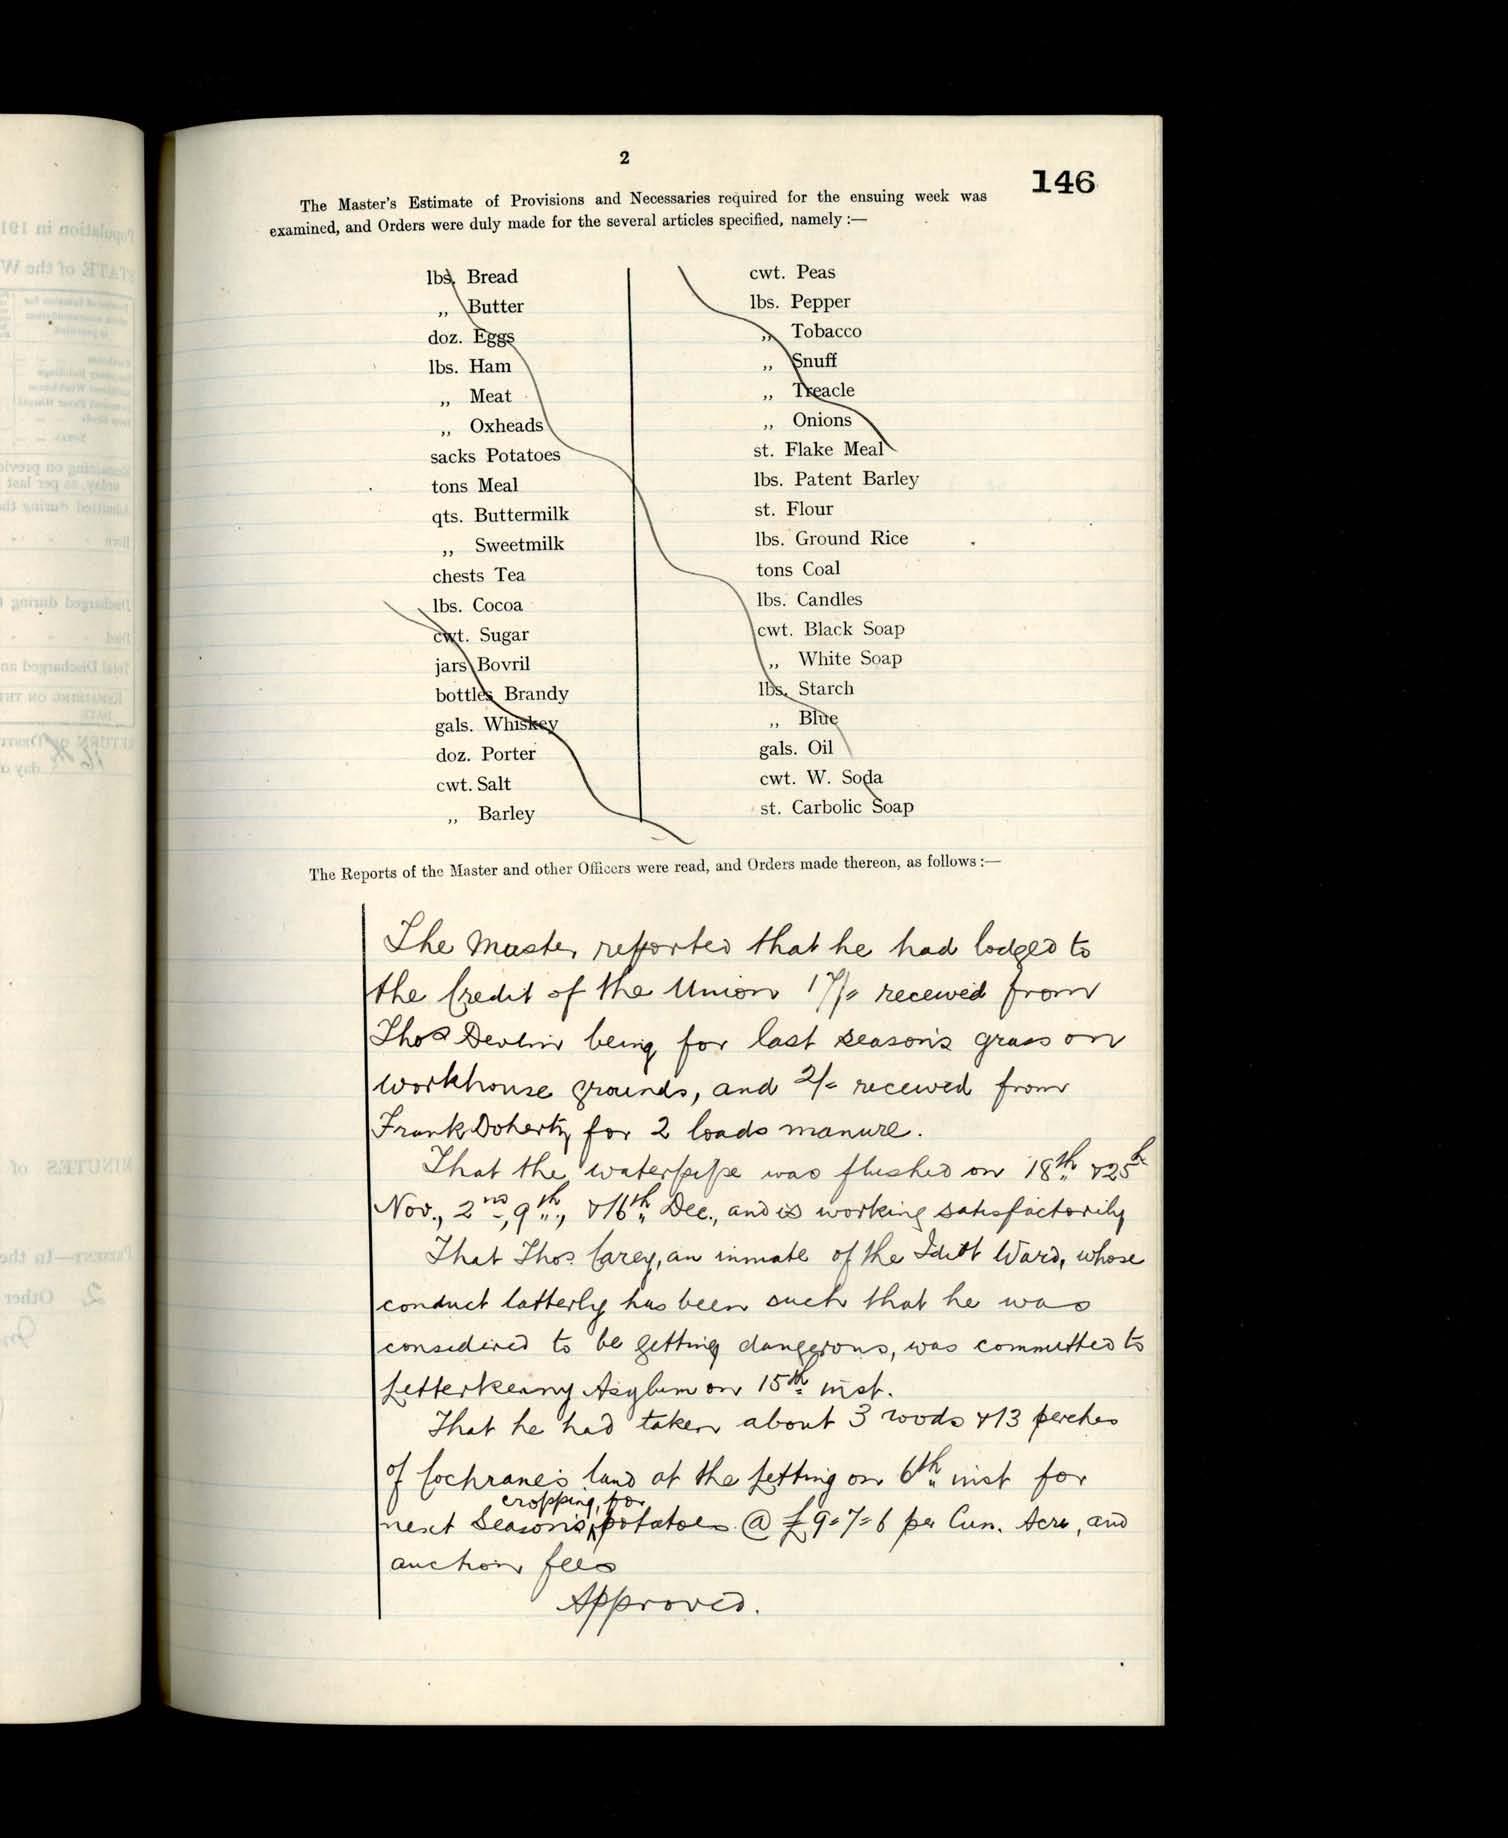 2
146
The Master's Estimate of Provisions and Necessaries required for the ensuing week was
examined, and Orders were duly made for the several articles specified, namely :—
lbs. Bread
„ Butter
doz. Eggs
lbs. Ham
„ Meat
„ Oxheads
sacks Potatoes
tons Meal
qts. Buttermilk
„ Sweetmilk
chests Tea
lbs. Cocoa
cwt. Sugar
jars Bovril
bottles Brandy
gals. Whiskey
doz. Porter
cwt. Salt
„ Barley
cwt. Peas
lbs. Pepper
„ Tobacco
„ Snuff
„ Treacle
„ Onions
st. Flake Meal
lbs. Patent Barley
st. Flour
lbs. Ground Rice
tons Coal
lbs. Candles
cwt. Black Soap
„ White Soap
lbs. Starch
„ Blue
gals. Oil
cwt. W. Soda
st. Carbolic Soap
The Reports of the Master and other Officers were read, and Orders made thereon, as follows :—
The Master reported that he had lodged to
the Credit of the Union 17/= received from
Thos Devlin being for last season's grass on
workhouse grounds, and 2/= received from
Frank Doherty for 2 loads manure.
That the waterpipe was flushed on 18th & 25th
Nov., 2nd, 9th, & 16th Dec., and is working satisfactorily
That Thos. Carey, an inmate of the Idiot Ward, whose
conduct latterly has been such that he was
considered to be getting dangerous, was committed to
Letterkenny Asylum on 15th inst.
That he had taken about 3 roods & 13 perches
of Cochrane's land at the letting on 6th inst for
next season's cropping, for potatoes @ £9=7=6 per Cun. Acre, and
auction fees
Approved.